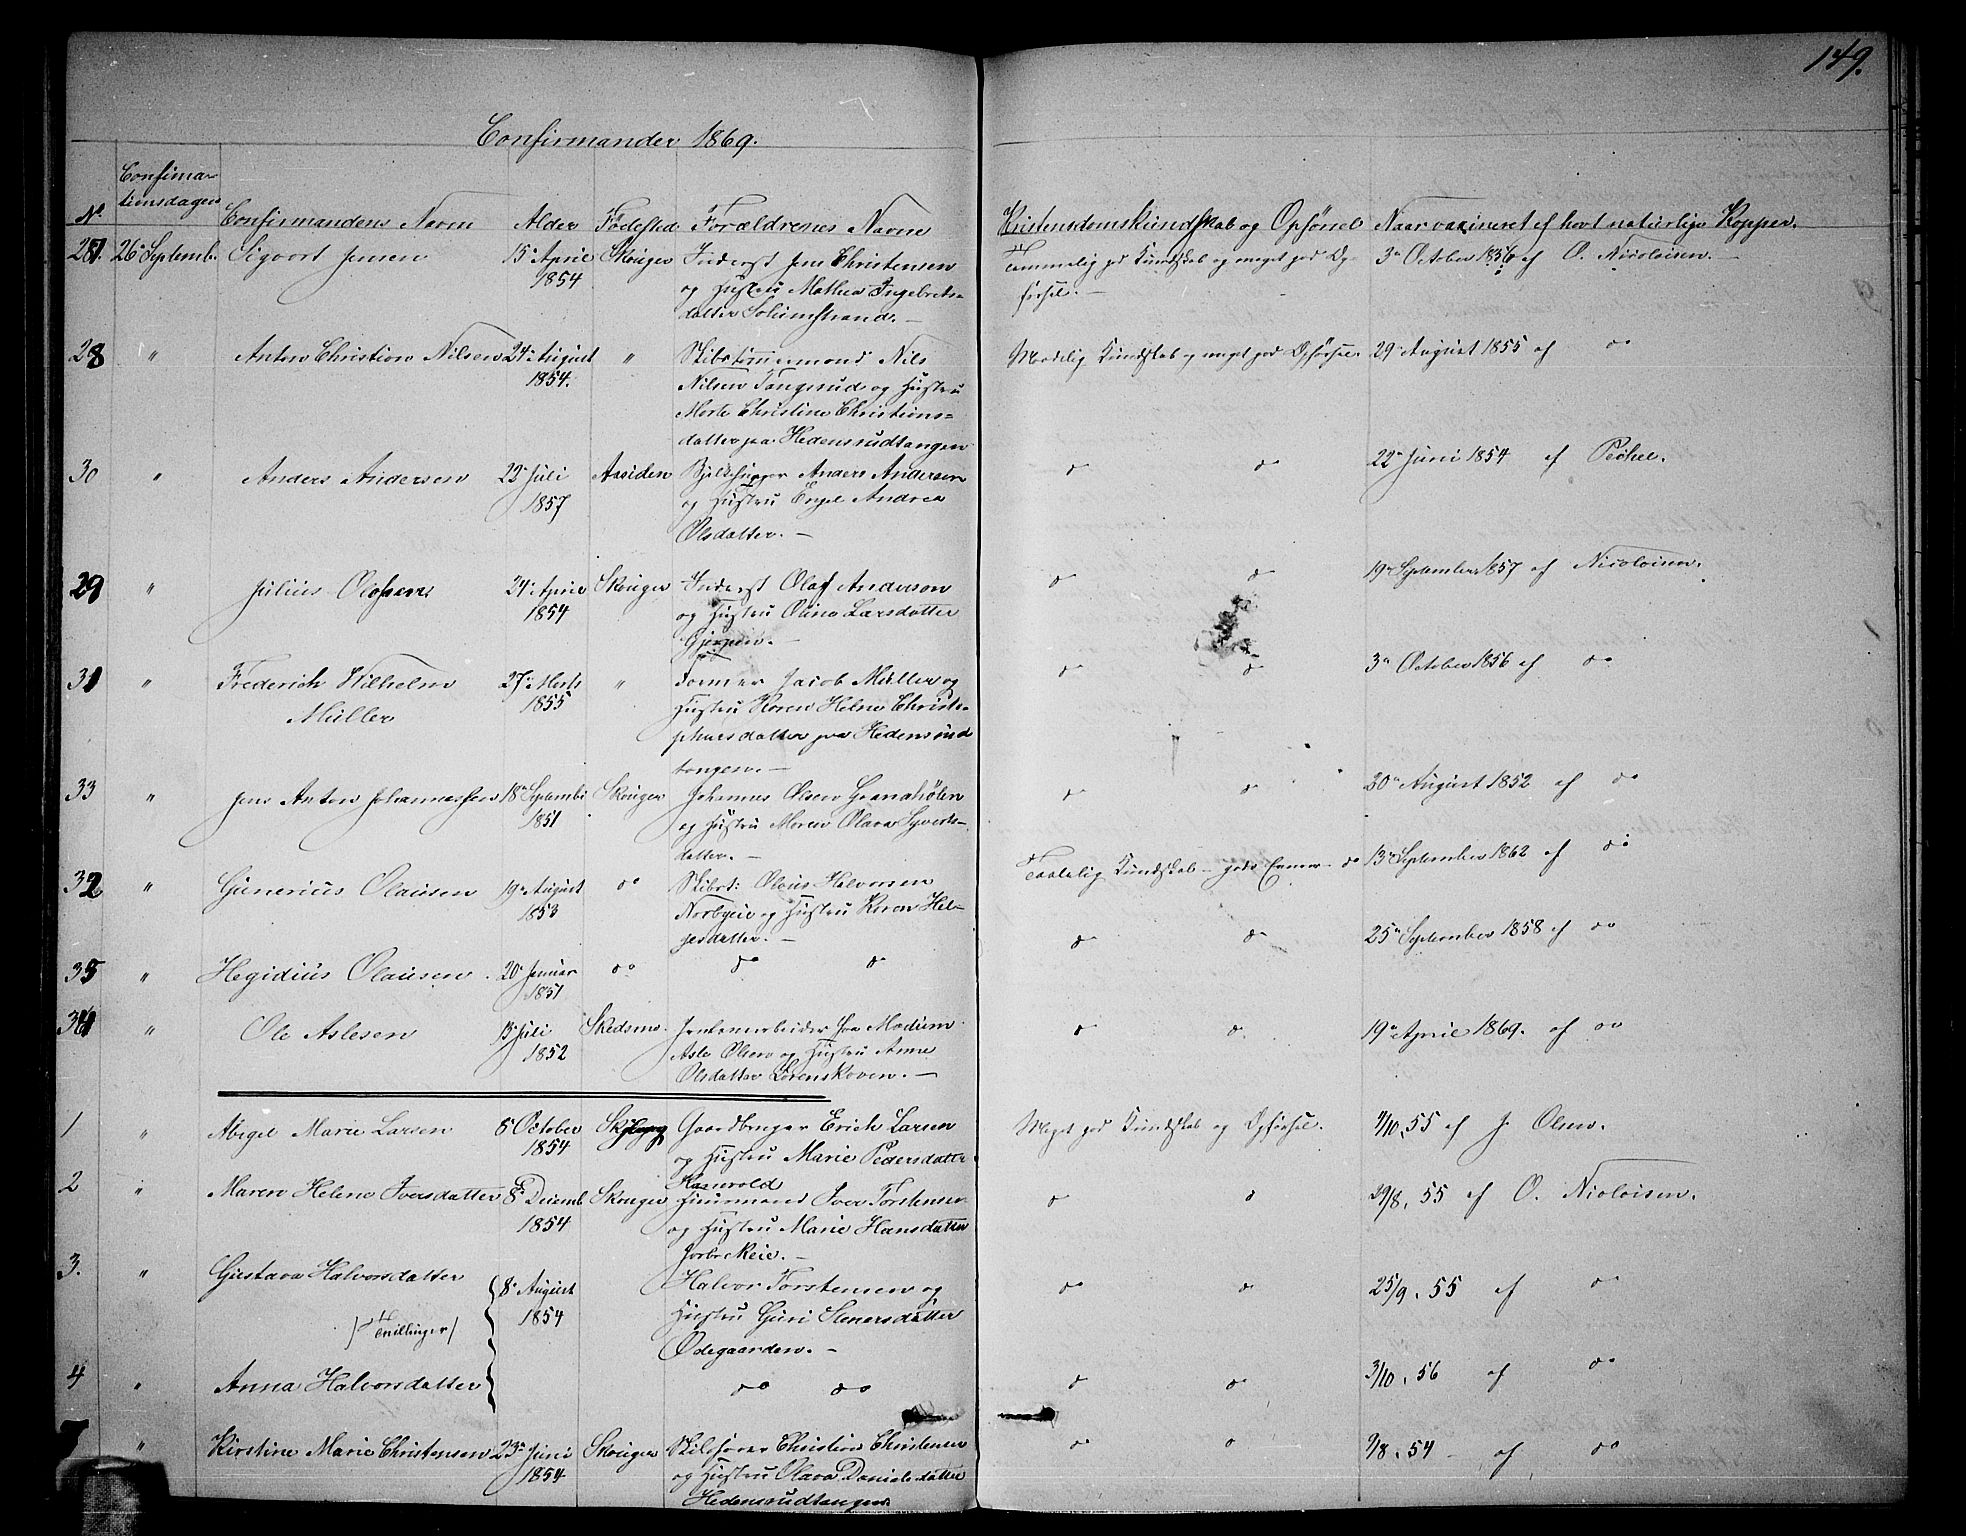 149.
Confirmander 1869.
Confirma-
tionsdagen
No Confirmandens Navn Alder Fødested Forældrenes Navne Kristendomskundskab og Opførsel Naar vaxineret ef havt naturlige Kopper.
27. 26 Septemb. Sigvart Jensen 15 April Skouger Inderst Jens Christensen Temmelig god Kundskab og meget god Op- 3 October 1856 af O. Nicolaisen.
1854 og Hustru Mathea Ingebrets- førsel. —
datter Solumstrand. —
28 " Anton Christian Nilsen 24 August " Skibstømmermand Nils Maadelig Kundskab og meget god Opførsel. 29 August 1855 af do
1854. Nilsen Tangerud og Hustru
Marte Christine Christians-
datter paa Hedensrudtangen
30 " Anders Andersen 22 Juli Assiden Bjelkehugger Anders Andersen do do 22 Juni 1854 af Pechel.
1857 og Hustru Engel Andrea
Olsdatter. —
29 " Julius Olafsen 24 April Skouger Inderst Olaf Andersen do do 19 September 1857 af Nicolaisen.
1854 og Hustru Olina Larsdatter
31 " Frederich Wilhelm 27 Marts " Former Jacob Müller og do do 3 October 1856 af do
Müller 1855 Hustru Karen Helene Christo-
phersdatter paa Hedensrud
tangen. —
33 " Jens Anton Johannessen 18 Septembr Skouger Johannes Olsen Granahølen do do 20 August 1852 af do
1851 og Hustru Maren Olava Syverts-
datter. —
32 " Gunerius Olausen 19 August do Skibst: Olaus Halvorsen Taalelig Kundskab – gode Evner – do 13 September 1862 af do
1853 Norbyeie og Hustru Karen Hel-
gesdatter. —
35 " Hegidius Olausen 20 Januar do do do do do 25 September 1858 af do
1851
34 " Ole Aslesen 15 Juli Skedsmo. Jernbanearbeider fra Modum do do 19 April 1869. af do
1852 Asle Olsen og Hustru Anne
Olsdatter Lørenskoven. —
1 " Abigel Marie Larsen 8 October Gaardbruger Erich Larsen Meget god Kundskab og Opførsel. 1/10. 55 af J. Olsen.
1854 og Hustru Marie Pedersdatter
2 " Maren Helene Iversdatter 8 Decemb Skouger Huusmand Iver Torstensen do do 29/8. 55 af O. Nicolaisen.
1854 og Hustru Marie Hansdatter
3. " Gustava Halvorsdatter 8 August Halvor Torstensen og do do 25/9. 55 af do
/Tvillinger/ 1854 Hustru Guri Stenersdatter
Ødegaarden. —
4 " Anna Halvorsdatter do do do do 3/10. 56 af do
7 " Kirstine Marie Christensen 23 Juni Skouger Skibsfører Christian Christensen do do 9/8. 54 – af do
1854 og Hustru Olava Danielsdatter
Hedensrudtangen.